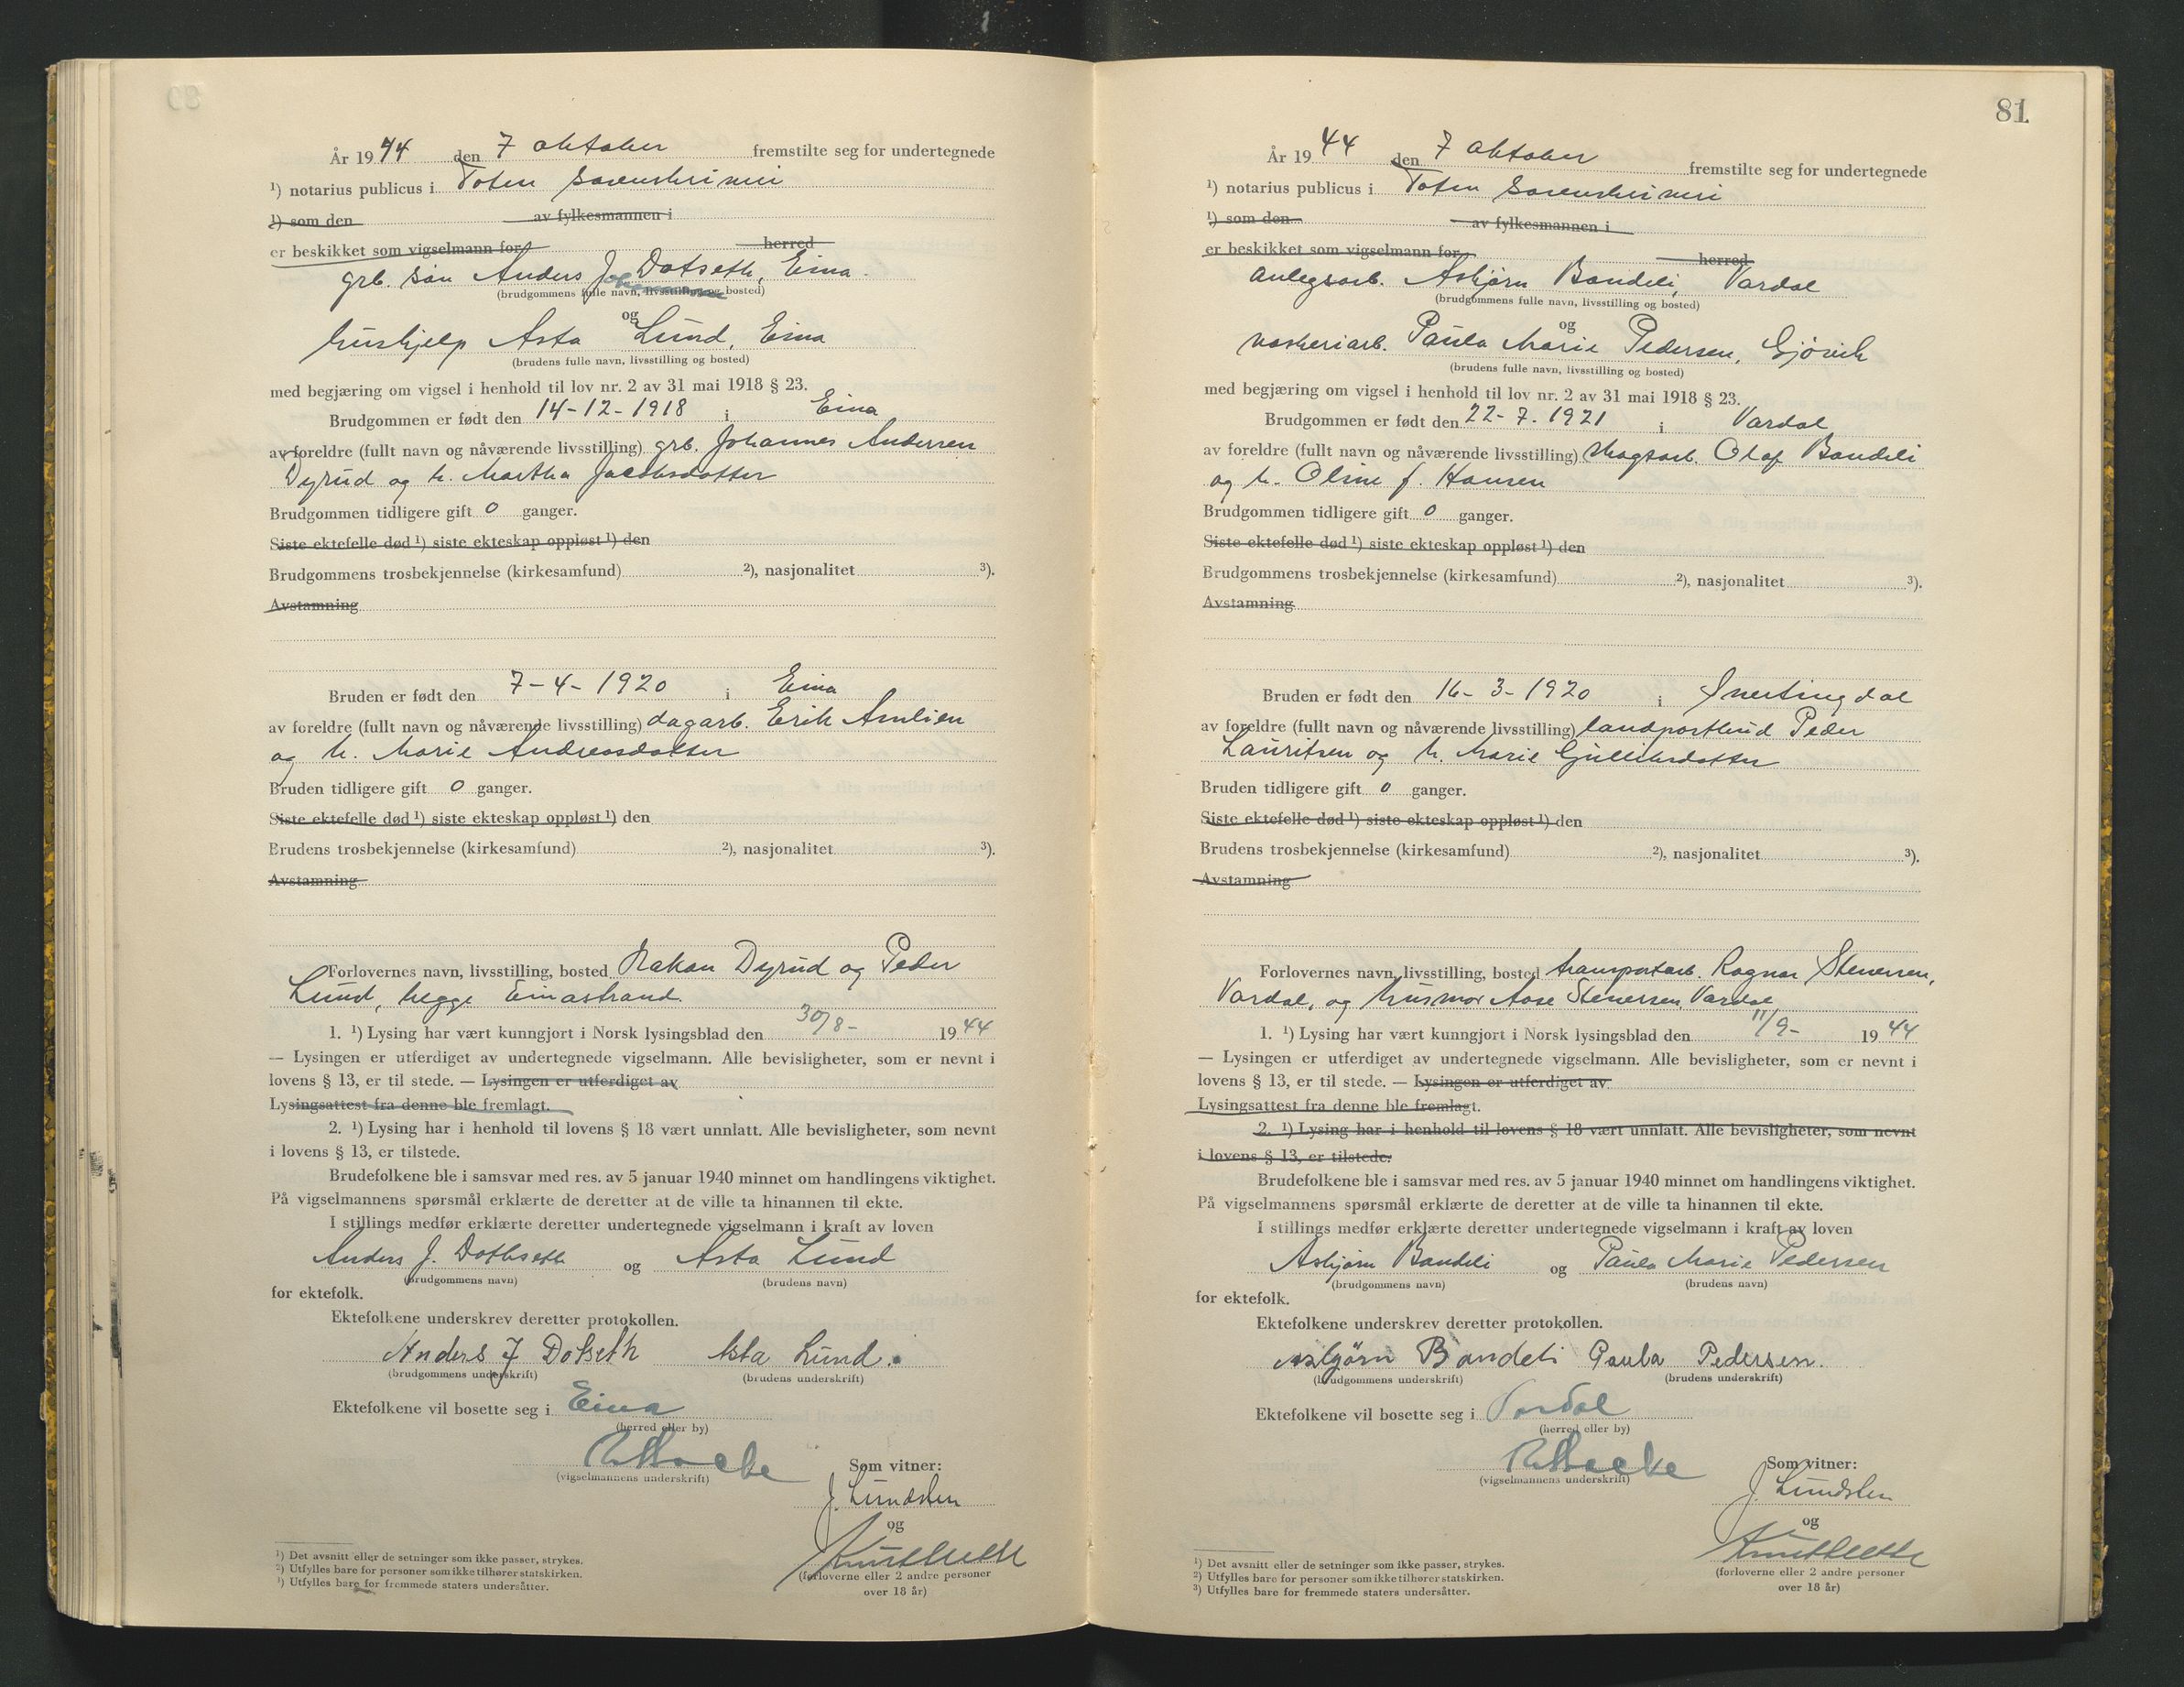 År 1944 den 7 oktober fremstilte seg for undertegnede
¹) notarius publicus i Toten sorenskriveri
¹) som den av fylkesmannen i
er beskikket som vigselmann for herred
grb. søn Anders J. Dotseth, Eina.
(brudgommens fulle navn, livsstilling og bosted)
og
hushjelp Asta Lund, Eina
(brudens fulle navn, livsstilling og bosted)
med begjæring om vigsel i henhold til lov nr. 2 av 31 mai 1918 § 23.
Brudgommen er født den 14-12-1918 i Eina
av foreldre (fullt navn og nåværende livsstilling) grb. Johannes Andersen
Dyrud og h. Martha Jacobsdatter
Brudgommen tidligere gift 0 ganger.
Siste ektefelle død ¹) siste ekteskap oppløst ¹) den
Brudgommens trosbekjennelse (kirkesamfund) ²), nasjonalitet ³).
Avstamning
Bruden er født den 7-4-1920 i Eina
av foreldre (fullt navn og nåværende livsstilling) dagarb. Erik Amlien
og h. Marie Andreasdatter
Bruden tidligere gift 0 ganger.
Siste ektefelle død ¹) siste ekteskap oppløst ¹) den
Brudens trosbekjennelse (kirkesamfund) ²), nasjonalitet ³).
Avstamning
Forlovernes navn, livsstilling, bosted Håkon Dyrud og Peder
Lund, begge Einastrand.
1. ¹) Lysing har vært kunngjort i Norsk lysingsblad den 30/8- 1944
— Lysingen er utferdiget av undertegnede vigselmann. Alle bevisligheter, som er nevnt i
lovens § 13, er til stede. — Lysingen er utferdiget av
Lysingsattest fra denne ble fremlagt.
2. ¹) Lysing har i henhold til lovens § 18 vært unnlatt. Alle bevisligheter, som nevnt
i lovens § 13, er tilstede.
Brudefolkene ble i samsvar med res. av 5 januar 1940 minnet om handlingens viktighet.
På vigselmannens spørsmål erklærte de deretter at de ville ta hinannen til ekte.
I stillings medfør erklærte deretter undertegnede vigselmann i kraft av loven
Anders J. Dothseth og Asta Lund
(brudgommens navn) (brudens navn)
for ektefolk.
Ektefolkene underskrev deretter protokollen.
Anders J Dotseth Asta Lund.
(brudgommens underskrift) (brudens underskrift)
Ektefolkene vil bosette seg i Eina
(herred eller by)
(vigselmannens underskrift)
Som vitner:
J. Lundsten
og
(forloverne eller 2 andre personer
over 18 år)
¹) Det avsnitt eller de setninger som ikke passer, strykes.
²) Utfylles bare for personer som ikke tilhører statskirken.
³) Utfylles bare for fremmede staters undersåtter.
81
År 1944 den 7 oktober fremstilte seg for undertegnede
¹) notarius publicus i Toten sorenskriveri
¹) som den av fylkesmannen i
er beskikket som vigselmann for herred
anlegsarb. Asbjørn Bondeli, Vardal
(brudgommens fulle navn, livsstilling og bosted)
og
vaskeriarb. Paula Marie Pedersen, Gjøvik
(brudens fulle navn, livsstilling og bosted)
med begjæring om vigsel i henhold til lov nr. 2 av 31 mai 1918 § 23.
Brudgommen er født den 22-7-1921 i Vardal
av foreldre (fullt navn og nåværende livsstilling) skogsarb. Olaf Bondeli
og h. Oline f. Hansen
Brudgommen tidligere gift 0 ganger.
Siste ektefelle død ¹) siste ekteskap oppløst ¹) den
Brudgommens trosbekjennelse (kirkesamfund) ²), nasjonalitet ³).
Avstamning
Bruden er født den 16-3-1920 i Snertingdal
av foreldre (fullt navn og nåværende livsstilling) landpostbud Peder
Lauritsen og h. Marie Gulliksdatter
Bruden tidligere gift 0 ganger.
Siste ektefelle død ¹) siste ekteskap oppløst ¹) den
Brudens trosbekjennelse (kirkesamfund) ²), nasjonalitet ³).
Avstamning
Forlovernes navn, livsstilling, bosted transportarb. Ragnar Stenersen,
Vardal, og husmor Aase Stenersen, Vardal
1. ¹) Lysing har vært kunngjort i Norsk lysingsblad den 11/9- 1944
— Lysingen er utferdiget av undertegnede vigselmann. Alle bevisligheter, som er nevnt i
lovens § 13, er til stede. — Lysingen er utferdiget av
Lysingsattest fra denne ble fremlagt.
2. ¹) Lysing har i henhold til lovens § 18 vært unnlatt. Alle bevisligheter, som nevnt
i lovens § 13, er tilstede.
Brudefolkene ble i samsvar med res. av 5 januar 1940 minnet om handlingens viktighet.
På vigselmannens spørsmål erklærte de deretter at de ville ta hinannen til ekte.
I stillings medfør erklærte deretter undertegnede vigselmann i kraft av loven
Asbjørn Bondeli og Paula Marie Pedersen
(brudgommens navn) (brudens navn)
for ektefolk.
Ektefolkene underskrev deretter protokollen.
Asbjørn Bondeli Paula Pedersen.
(brudgommens underskrift) (brudens underskrift)
Ektefolkene vil bosette seg i Vardal
(herred eller by)
(vigselmannens underskrift)
Som vitner:
J. Lundsten
og
(forloverne eller 2 andre personer
over 18 år)
¹) Det avsnitt eller de setninger som ikke passer, strykes.
²) Utfylles bare for personer som ikke tilhører statskirken.
³) Utfylles bare for fremmede staters undersåtter.